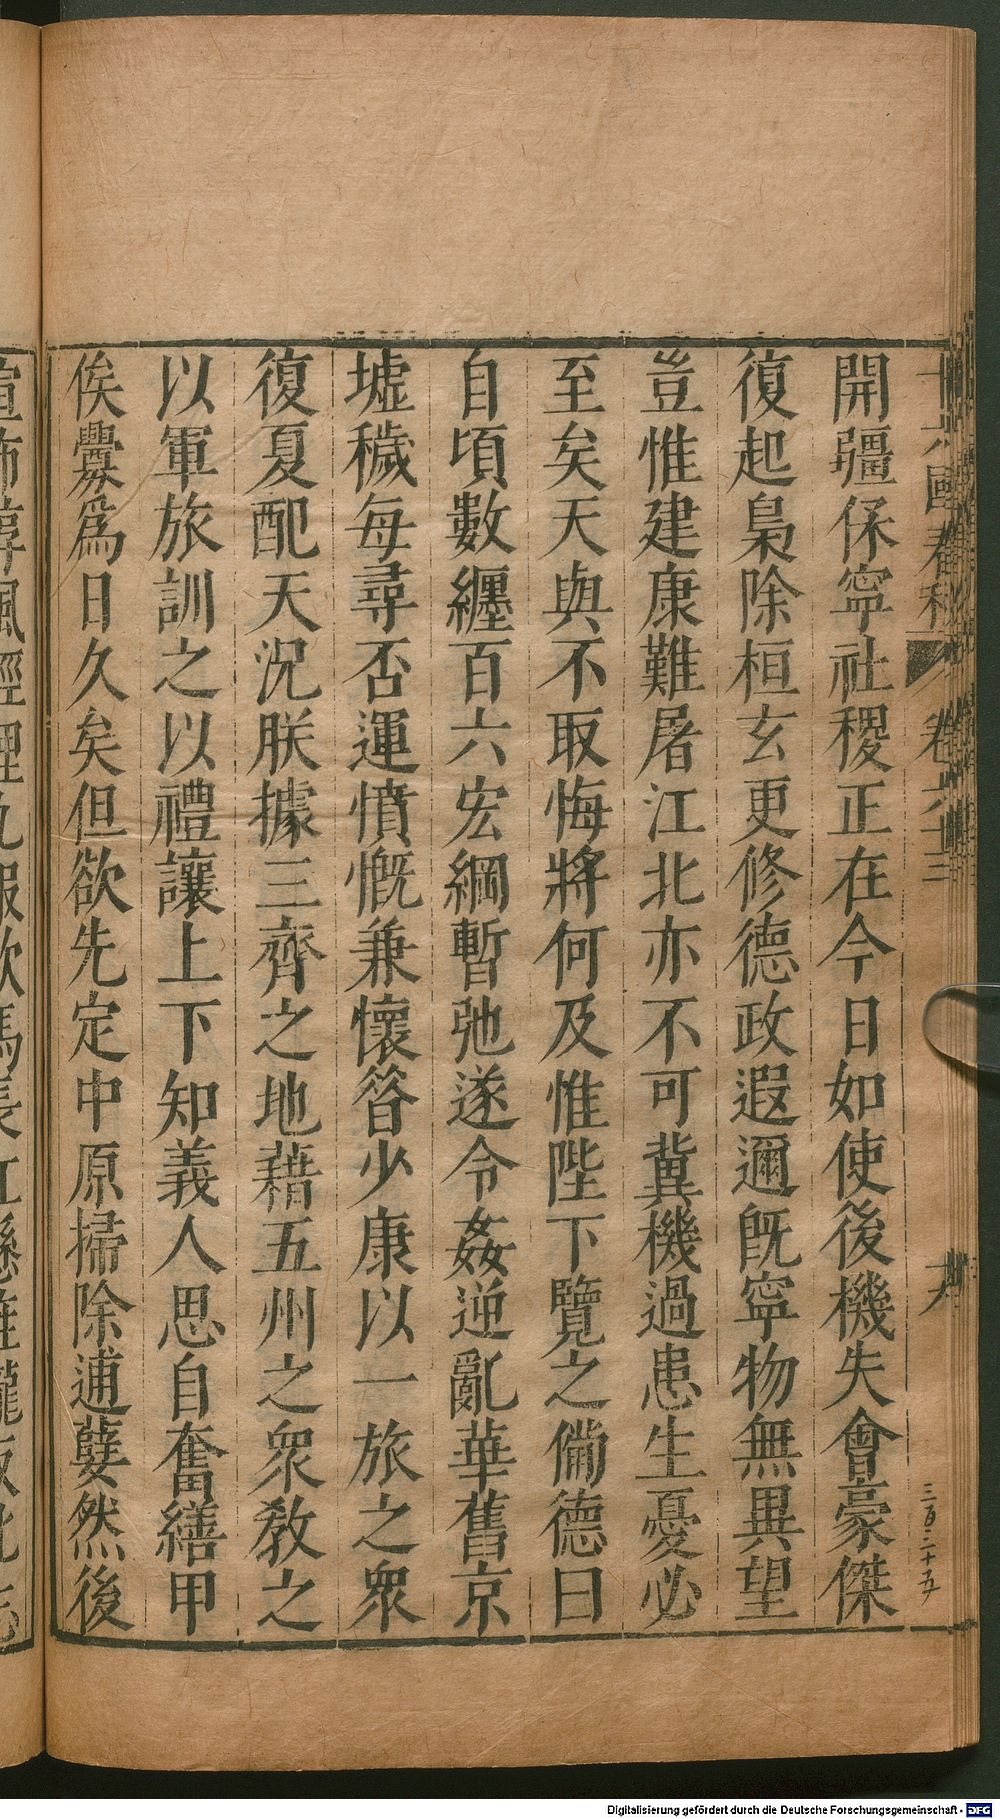 十六國春秋 卷六十三 十六
三百三十五
開疆保寧社稷正在今日如使後機失會豪傑
復起梟除桓玄更修德政遐邇旣寧物無異望
豈惟建康難屠江北亦不可冀機過患生憂必
至矣天與不取悔將何及惟陛下覽之備德曰
自頃數纏百六宏綱暫弛遂令姦逆亂華舊京
墟穢每尋否運憤慨兼懷昝少康以一旅之衆
復夏配天况朕據三齊之地藉五州之衆敎之
以軍旅訓之以禮讓上下知義人思自奮繕甲
俟釁爲日久矣但欲先定中原掃除逋孽然後
Digitalisierung gefördert durch die Deutsche Forschungsgemeinschaft - DFG